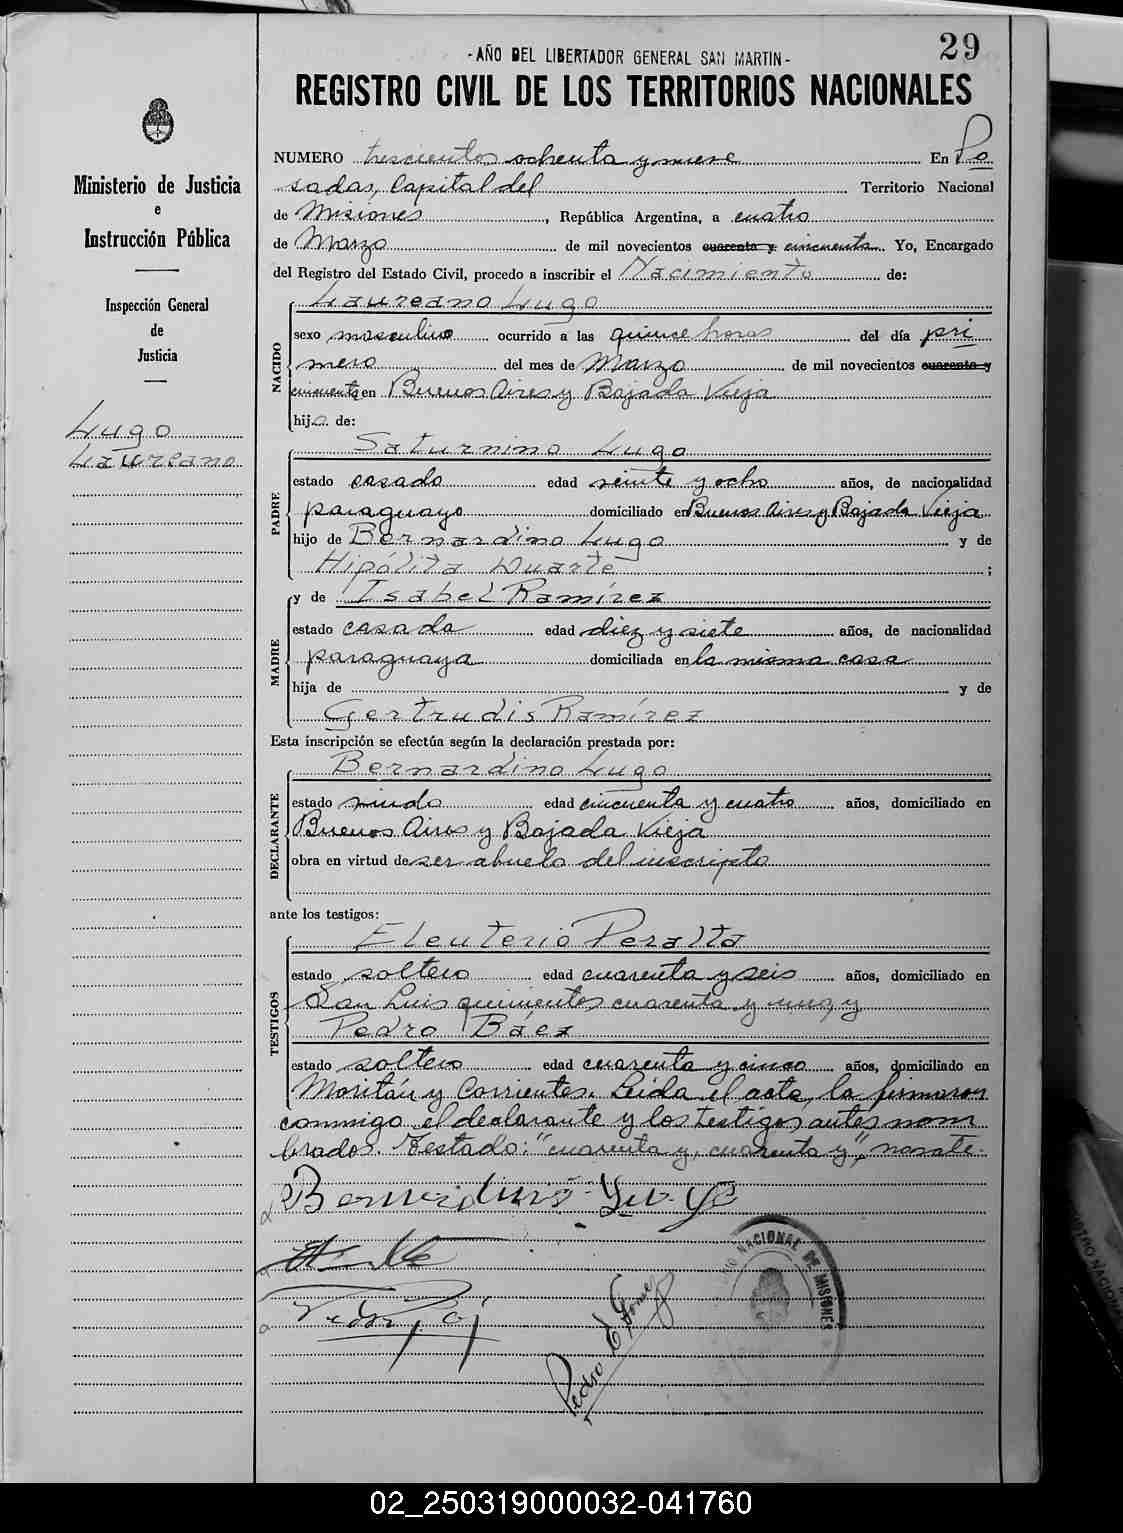 29
- AÑO DEL LIBERTADOR GENERAL SAN MARTIN -
REGISTRO CIVIL DE LOS TERRITORIOS NACIONALES
Ministerio de Justicia
e
Instrucción Pública
Inspección General
de
Justicia
Lugo
Laureano
NUMERO trescientos ochenta y nueve En Po
sadas, Capital del Territorio Nacional
de Misiones, República Argentina, a cuatro
de Marzo de mil novecientos cuarenta y cincuenta. Yo, Encargado
del Registro del Estado Civil, procedo a inscribir el Nacimiento de:
NACIDO
Laureano Lugo
sexo masculino ocurrido a las quince horas del día pri
mero del mes de Marzo de mil novecientos cuarenta y
cincuenta en Buenos Aires y Bajada Vieja
hijo de:
PADRE
Saturnino Lugo
estado casado edad veinte y ocho años, de nacionalidad
paraguayo domiciliado en Buenos Aires y Bajada Vieja
hijo de Bernardino Lugo y de
Hipólita Duarte ;
MADRE
y de Isabel Ramírez
estado casada edad diez y siete años, de nacionalidad
paraguaya domiciliada en la misma casa
hija de y de
Gertrudis Ramírez
Esta inscripción se efectúa según la declaración prestada por:
DECLARANTE
Bernardino Lugo
estado viudo edad cincuenta y cuatro años, domiciliado en
Buenos Aires y Bajada Vieja
obra en virtud de ser abuelo del inscripto
ante los testigos:
TESTIGOS
Eleuterio Peralta
estado soltero edad cuarenta y seis años, domiciliado en
San Luis quinientos cuarenta y uno, y
Pedro Báez
estado soltero edad cuarenta y cinco años, domiciliado en
Moritán y Corrientes. Leída el acta, la firmaron
conmigo el declarante y los testigos antes nom
brados. Testado: "cuarenta y, cuarenta y", no vale.
Bernardino Lugo
Pedro E Gomez
NACIONAL DE MISIONES
02_250319000032-041760